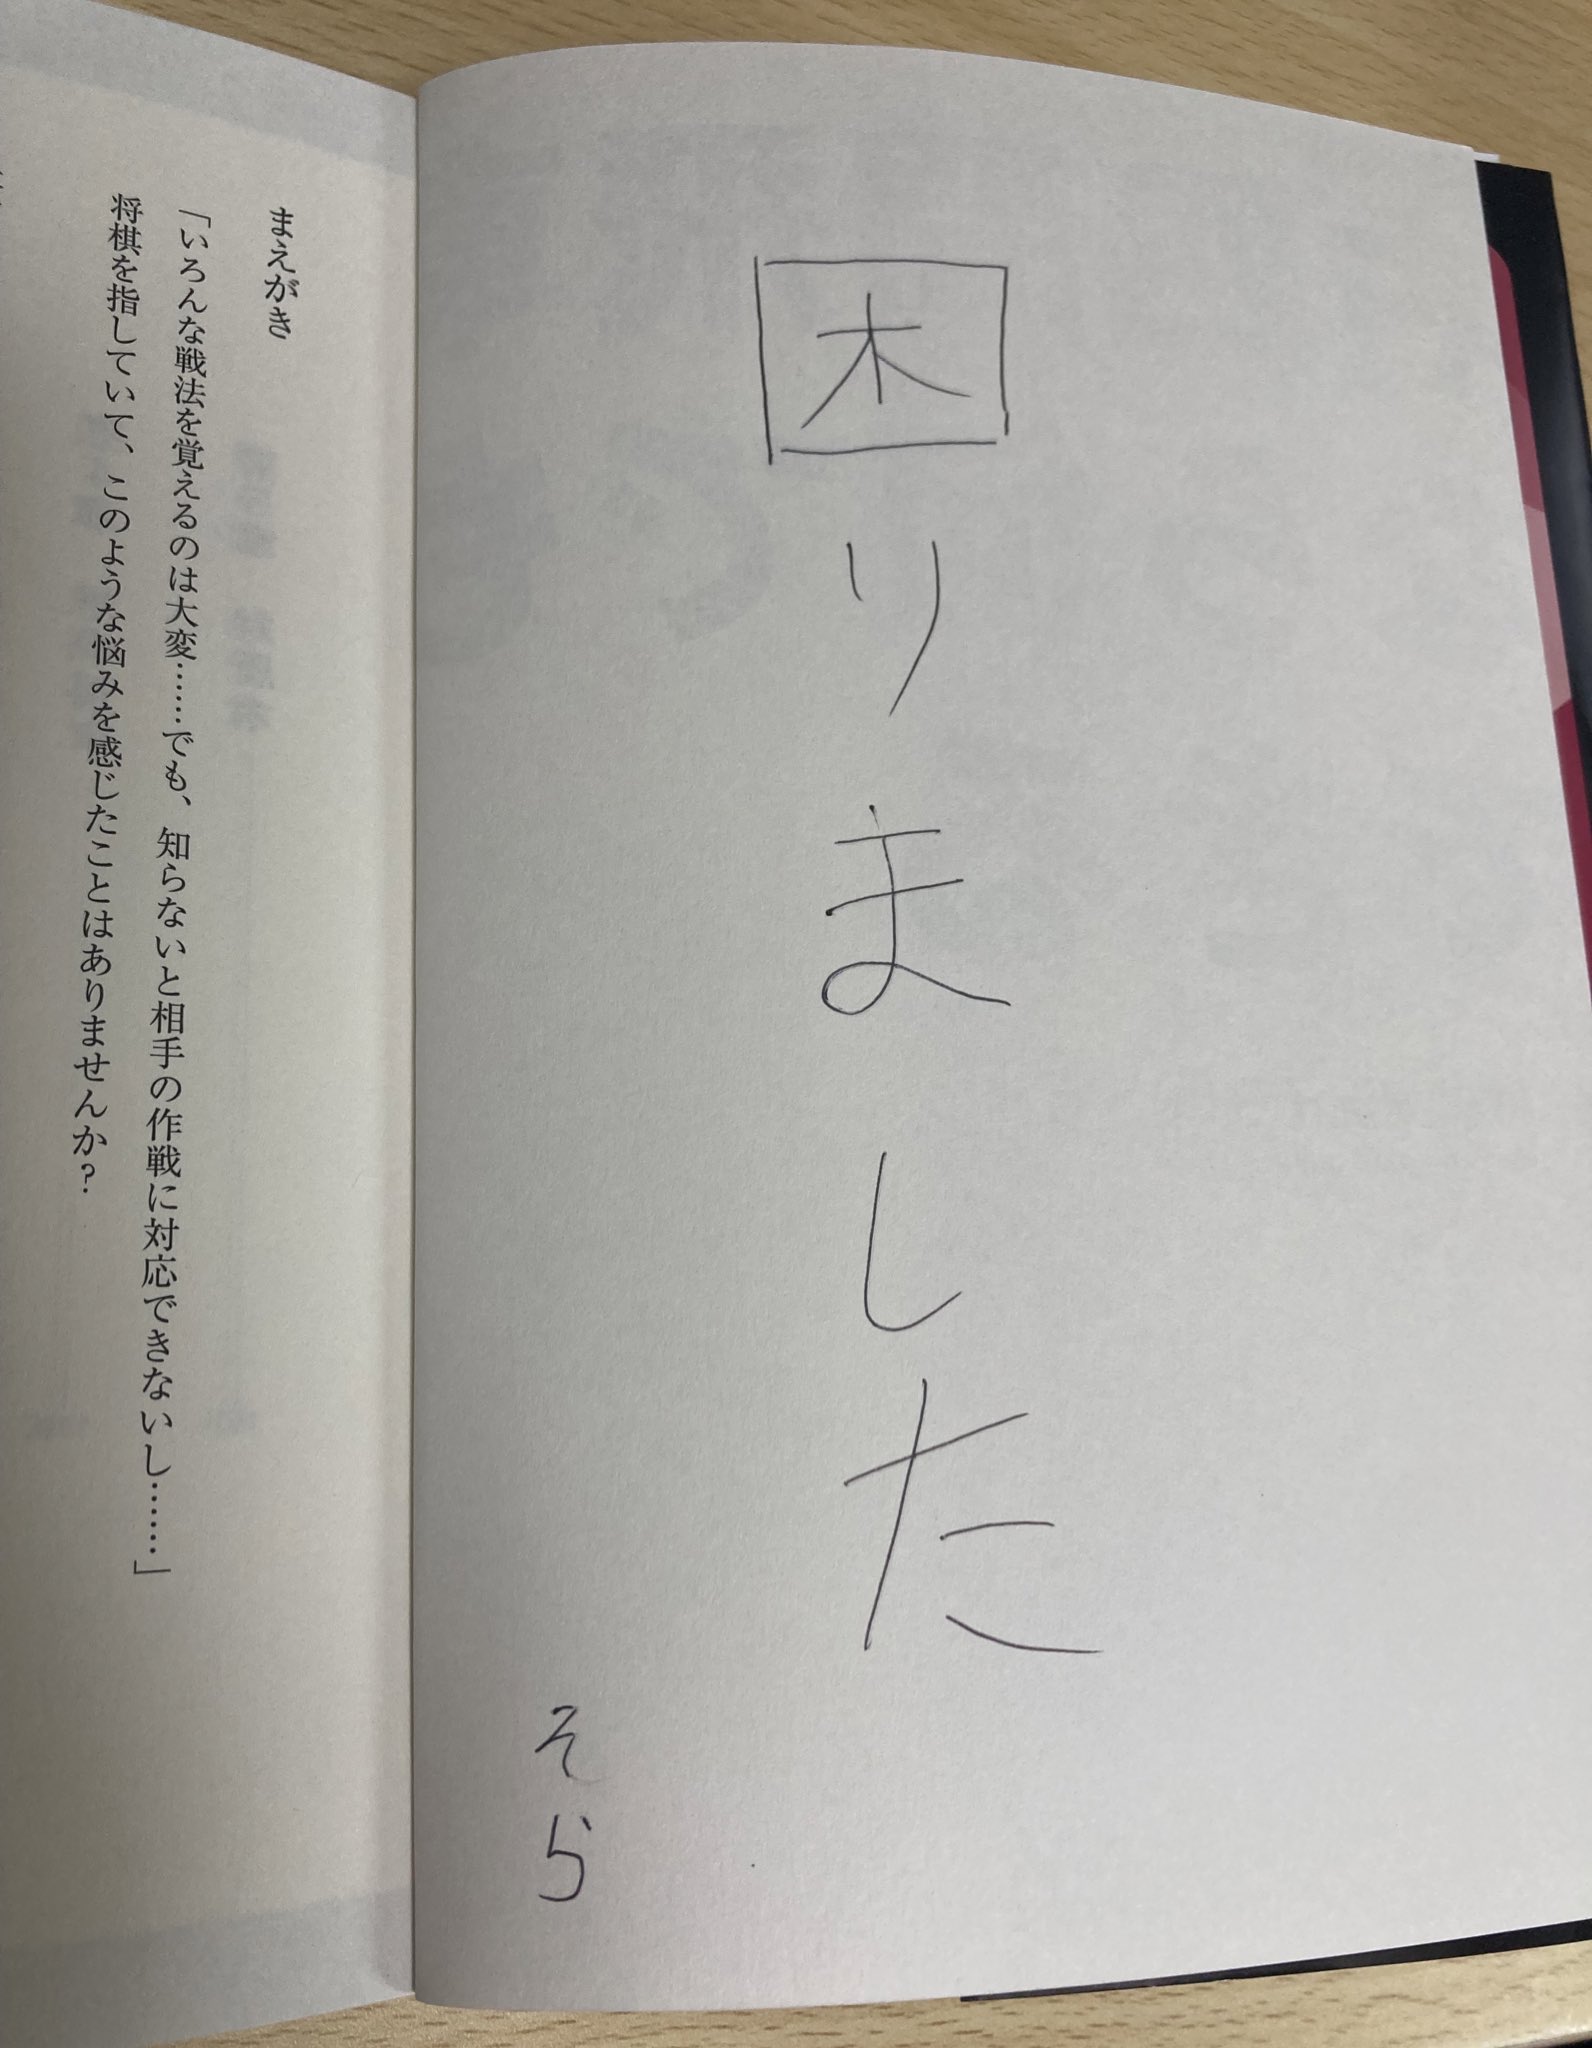 困りました
そら
まえがき
「いろんな戦法を覚えるのは大変……でも、知らないと相手の作戦に対応できないし……」
将棋を指していて、このような悩みを感じたことはありませんか？